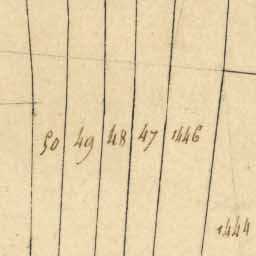 50 49 48 47 1446
1444